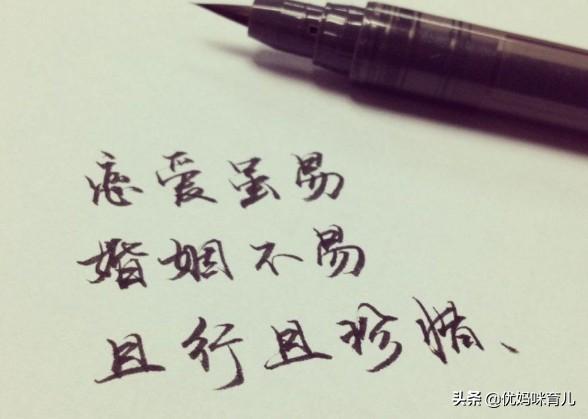 恋爱虽易
婚姻不易
且行且珍惜、
头条 @优妈咪育儿